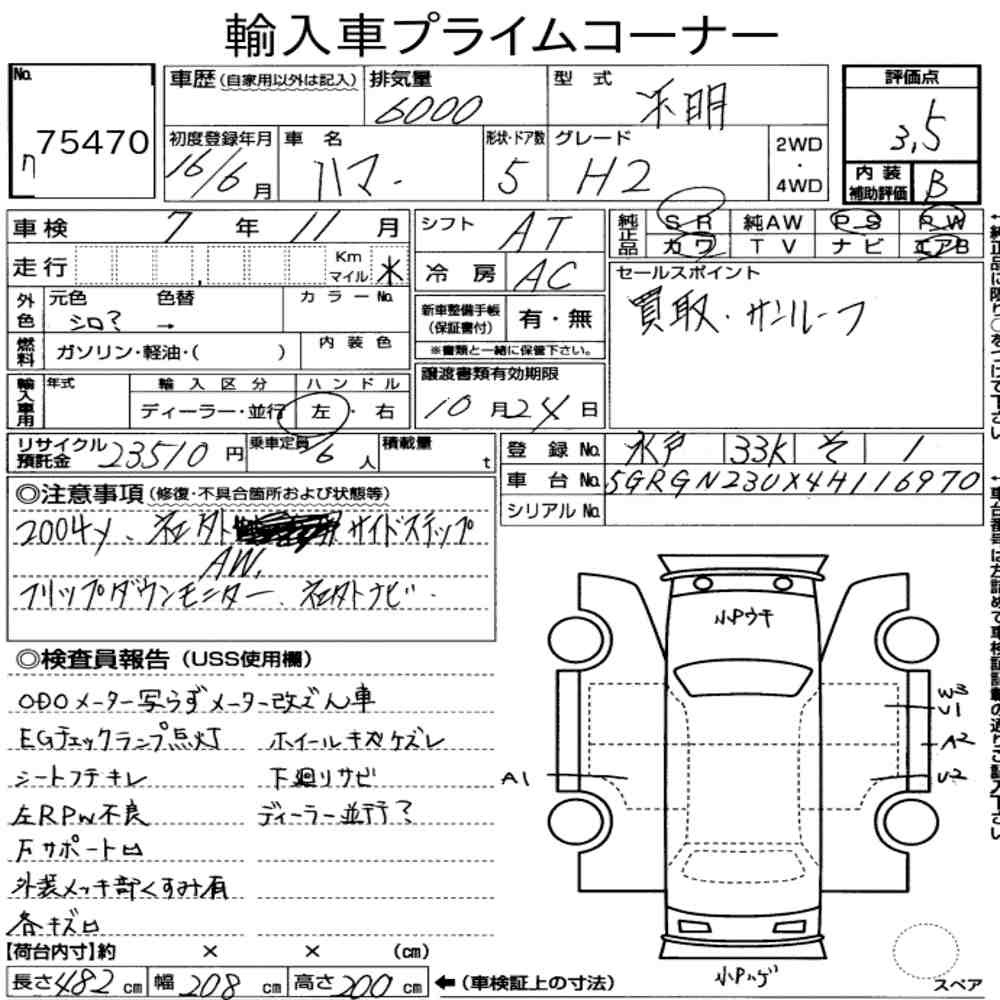 輸入車プライムコーナー
No.
75470
ワ
車歴 (自家用以外は記入) 排気量 6000 型式 不明
初度登録年月 16/6月 車名 ハマー 形状・ドア数 5 グレード H2 2WD・4WD
評価点 3.5
内装補助評価 B
車検 7年 11月
走行 Km マイル 米
外色 元色 シロ? 色替 → カラーNo.
燃料 ガソリン・軽油・( ) 内装色
輸入車用 年式 輸入区分 ディーラー・並行 ハンドル 左・右
シフト AT
冷房 AC
新車整備手帳(保証書付) 有・無
※書類と一緒に保管下さい。
譲渡書類有効期限
10月24日
純正品 SR 純AW PS PW
カワ TV ナビ エアB
セールスポイント
買取・サンルーフ
リサイクル預託金 23510円 乗車定員 6人 積載量 t
登録No. 水戸 33K そ 1
車台No. 5GRGN23UX4H116970
シリアルNo.
◎注意事項 (修復・不具合箇所および状態等)
2004y、社外 サイドステップ
AW.
フリップダウンモニター、社外ナビ.
◎検査員報告 (USS使用欄)
ODOメーター写らずメーター改ざん車
EGチェックランプ点灯 ホイールキズケズレ
シートフチキレ 下廻りサビ
左RPW不良 ディーラー並行?
Fサポート凹
外装メッキ部くすみ有
各キズ凹
【荷台内寸】約 × × (cm)
長さ 482 cm 幅 208 cm 高さ 200 cm ←(車検証上の寸法)
小Pウキ
W3
U1
A2
U2
A1
小Pハゲ
スペア
↑純正品に限り○をつけて下さい
↑車台番号は左詰めで車検証記載の通りご記入下さい